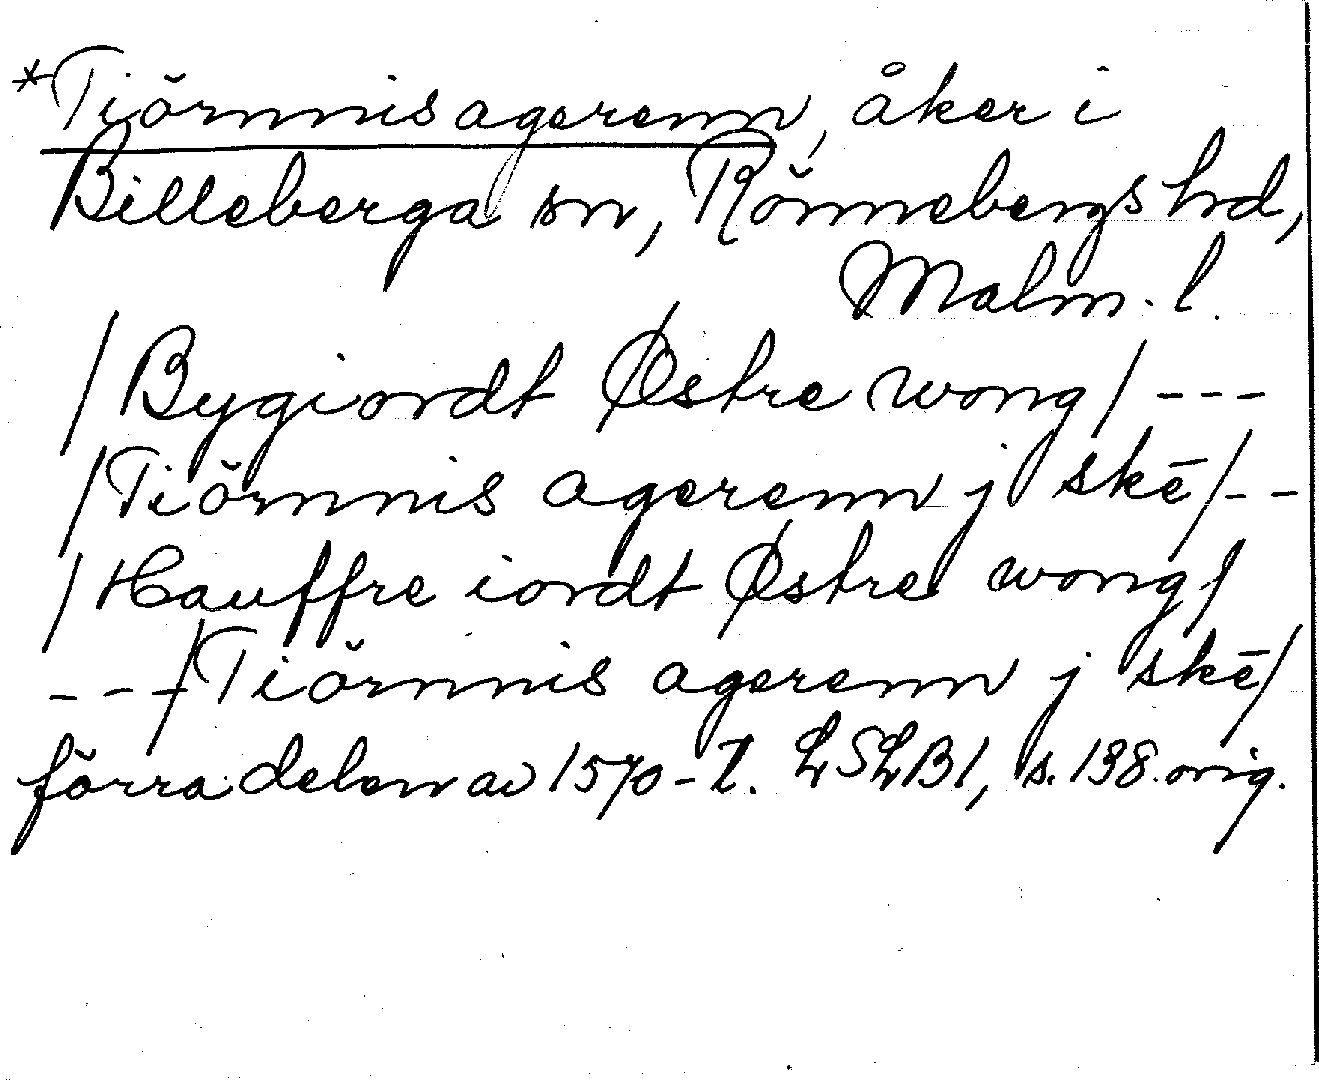 *Tiörnnis agerenn, åker i
Billeberga sn, Rönnebergs hd,
Malm. l.
/Bygiordt Østre wong/ ---
/Tiörnnis agerenn j skē/--
/Hauffre iordt Østre wong/
---/Tiörnnis agerenn j skē/
förra delen av 1570-t. LSLB1, s. 138 orig.